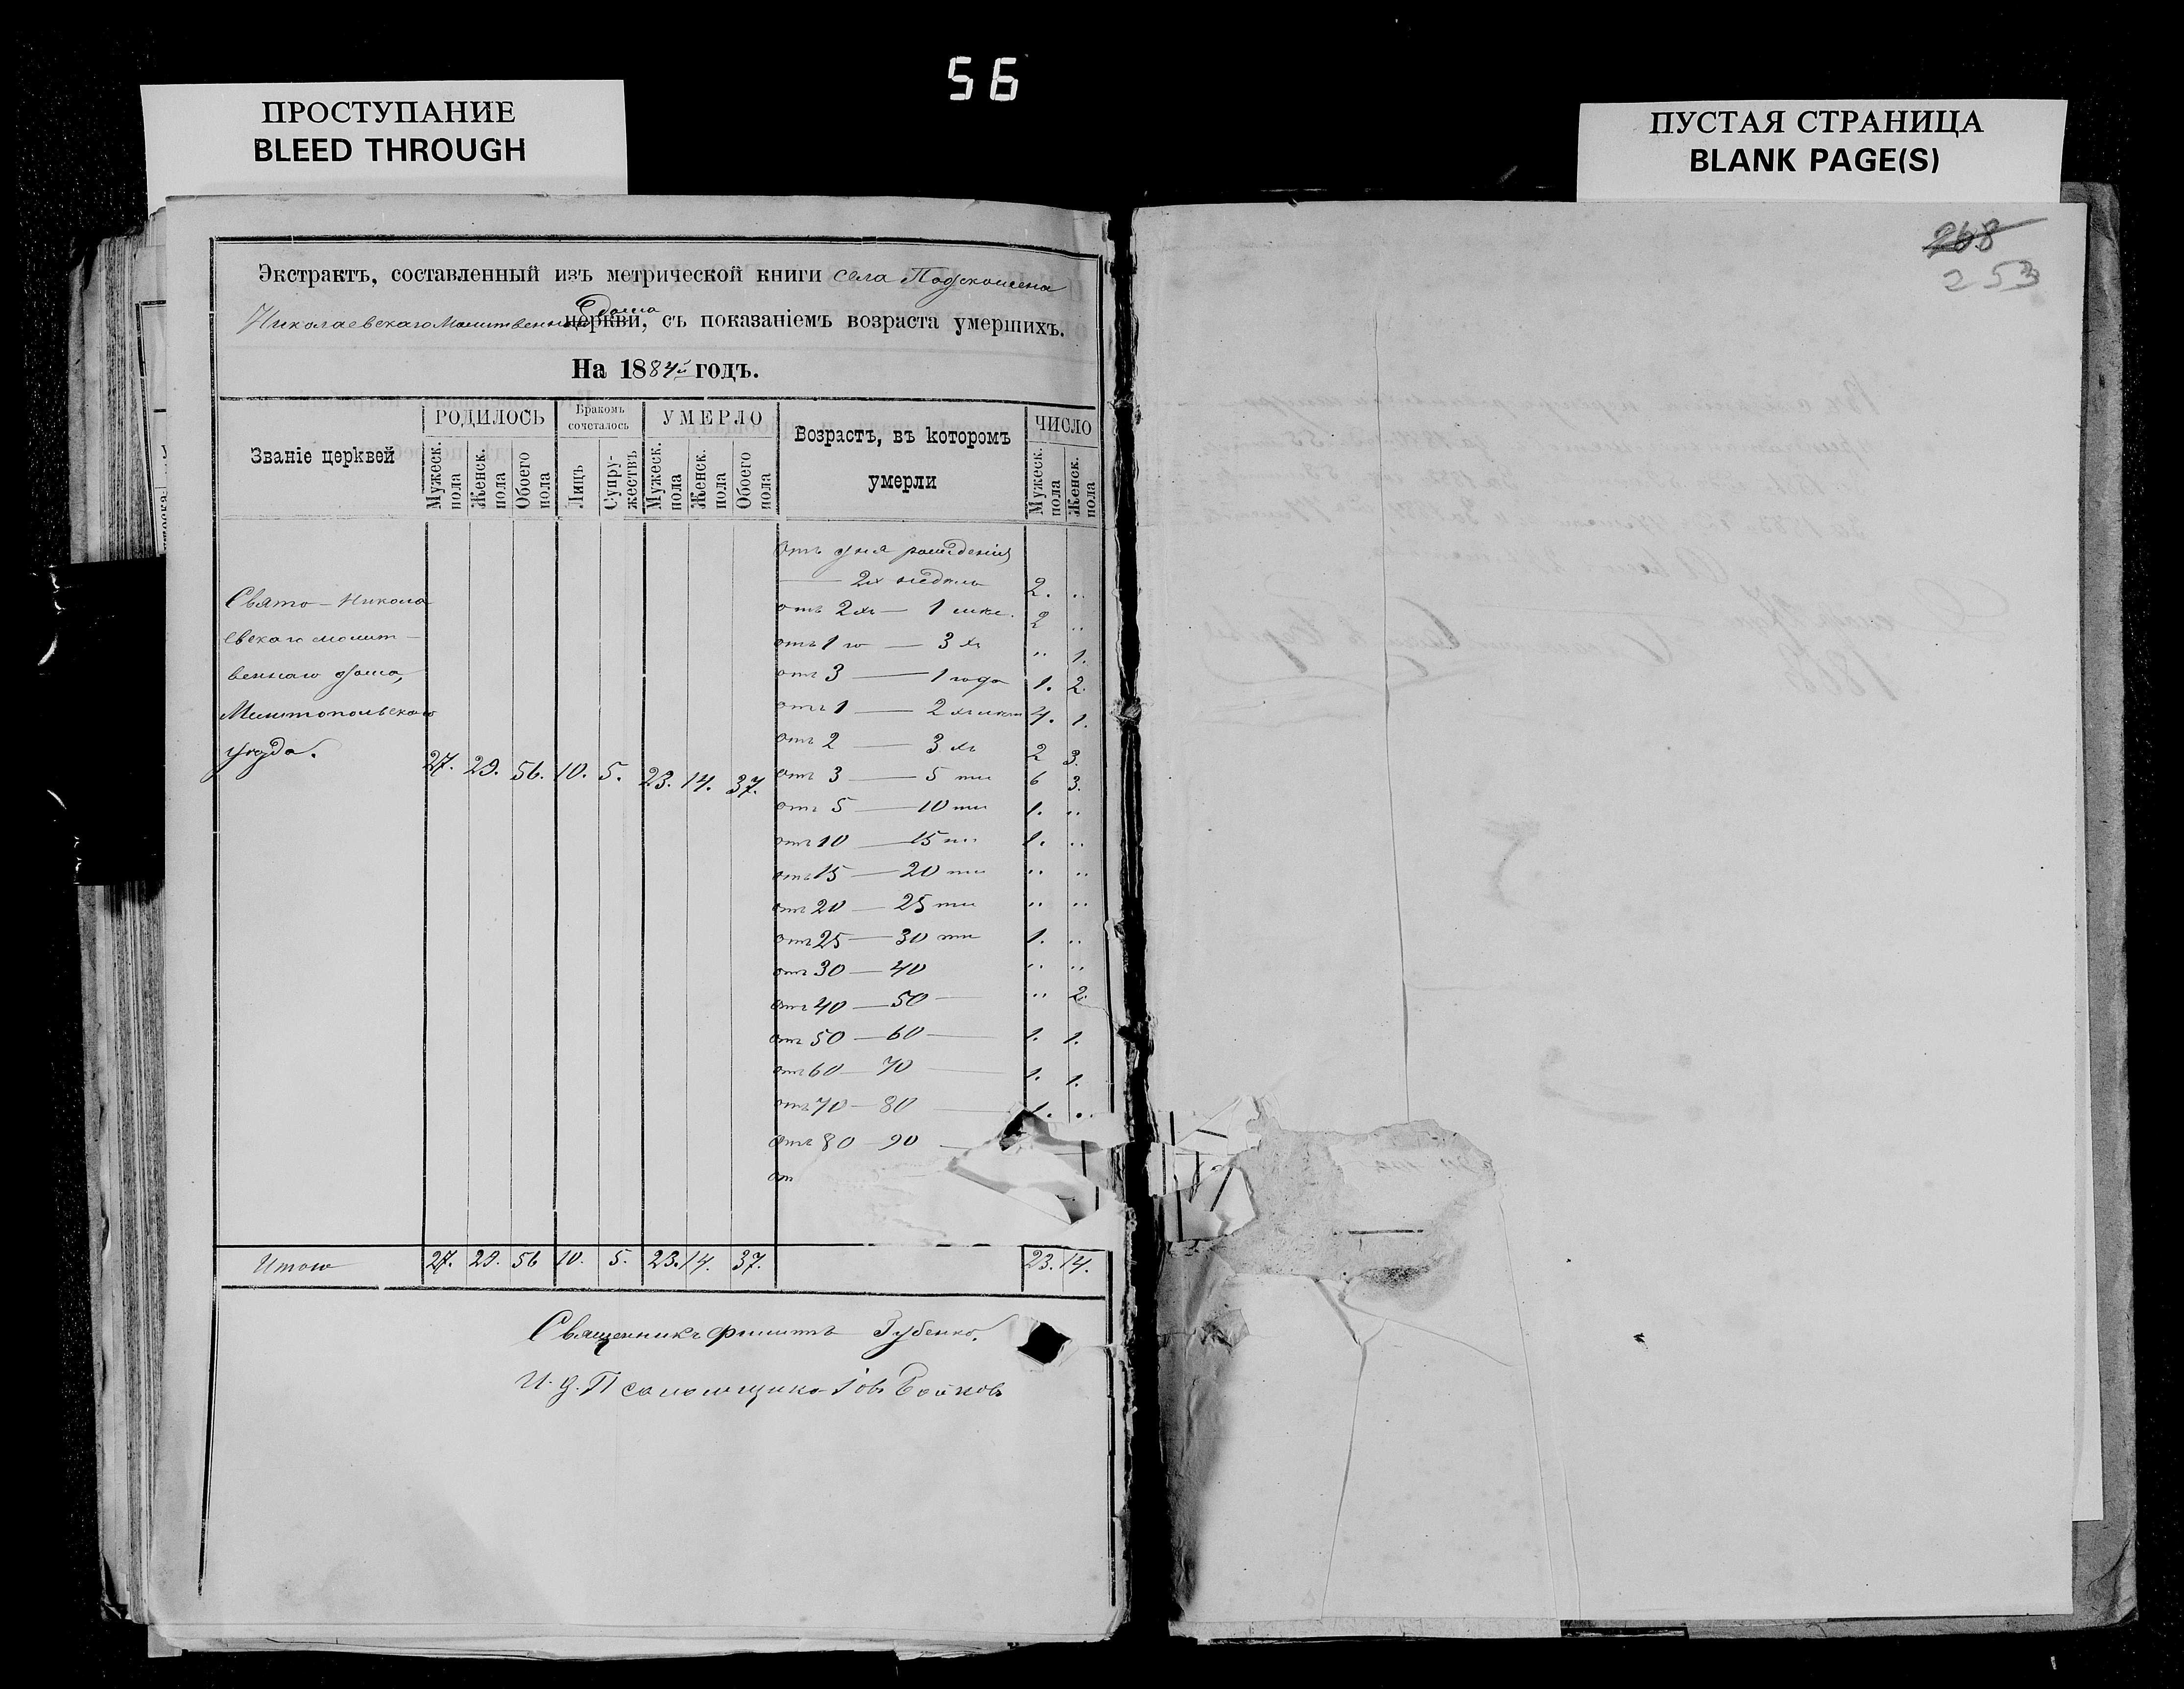 56
ПРОСТУПАНИЕ
BLEED THROUGH
ПУСТАЯ СТРАНИЦА
BLANK PAGE(S)
268
253
Экстрактъ, составленный изъ метрической книги села
Николаевскаго Молитвеннаго дома церкви, съ показаніемъ возраста умершихъ.
На 1884й годъ.
Званіе церквей
РОДИЛОСЬ
Мужеск. пола
Женск. пола
Обоего пола
Бракомъ сочеталось
Лицъ
Супружествъ
УМЕРЛО
Мужеск. пола
Женск. пола
Обоего пола
Возрастъ, въ которомъ умерли
ЧИСЛО
Мужеск. пола
Женск. пола
Свято-Никола
евскаго молит-
веннаго дома,
Мелитопольскаго
уѣзда. 27. 29. 56. 10. 5. 23. 14. 37.
Отъ дня рожденія
— 2хъ недѣль 2. ..
отъ 2хъ — 1 мѣс. 2 ..
отъ 1 го — 3 хъ .. 1.
отъ 3 — 1 года 1. 2.
отъ 1 — 2 хъ 4. 1.
отъ 2 — 3 хъ 2 3.
отъ 3 — 5 ти 6 3.
отъ 5 — 10 ти 1. ..
отъ 10 — 15 ти 1. ..
отъ 15 — 20 ти .. ..
отъ 20 — 25 ти .. ..
отъ 25 — 30 ти 1. ..
отъ 30 — 40 .. ..
отъ 40 — 50 — .. 2.
отъ 50 — 60 — 1. 1.
отъ 60 — 70 — 1. 1.
отъ 70 — 80 — 1. ..
отъ 80 — 90 —
от
Итого 27. 29. 56 10. 5. 23. 14. 37. 23. 14.
Священникъ Филиппъ Губенко.
И. д. Псаломщика Іовъ Бойковъ